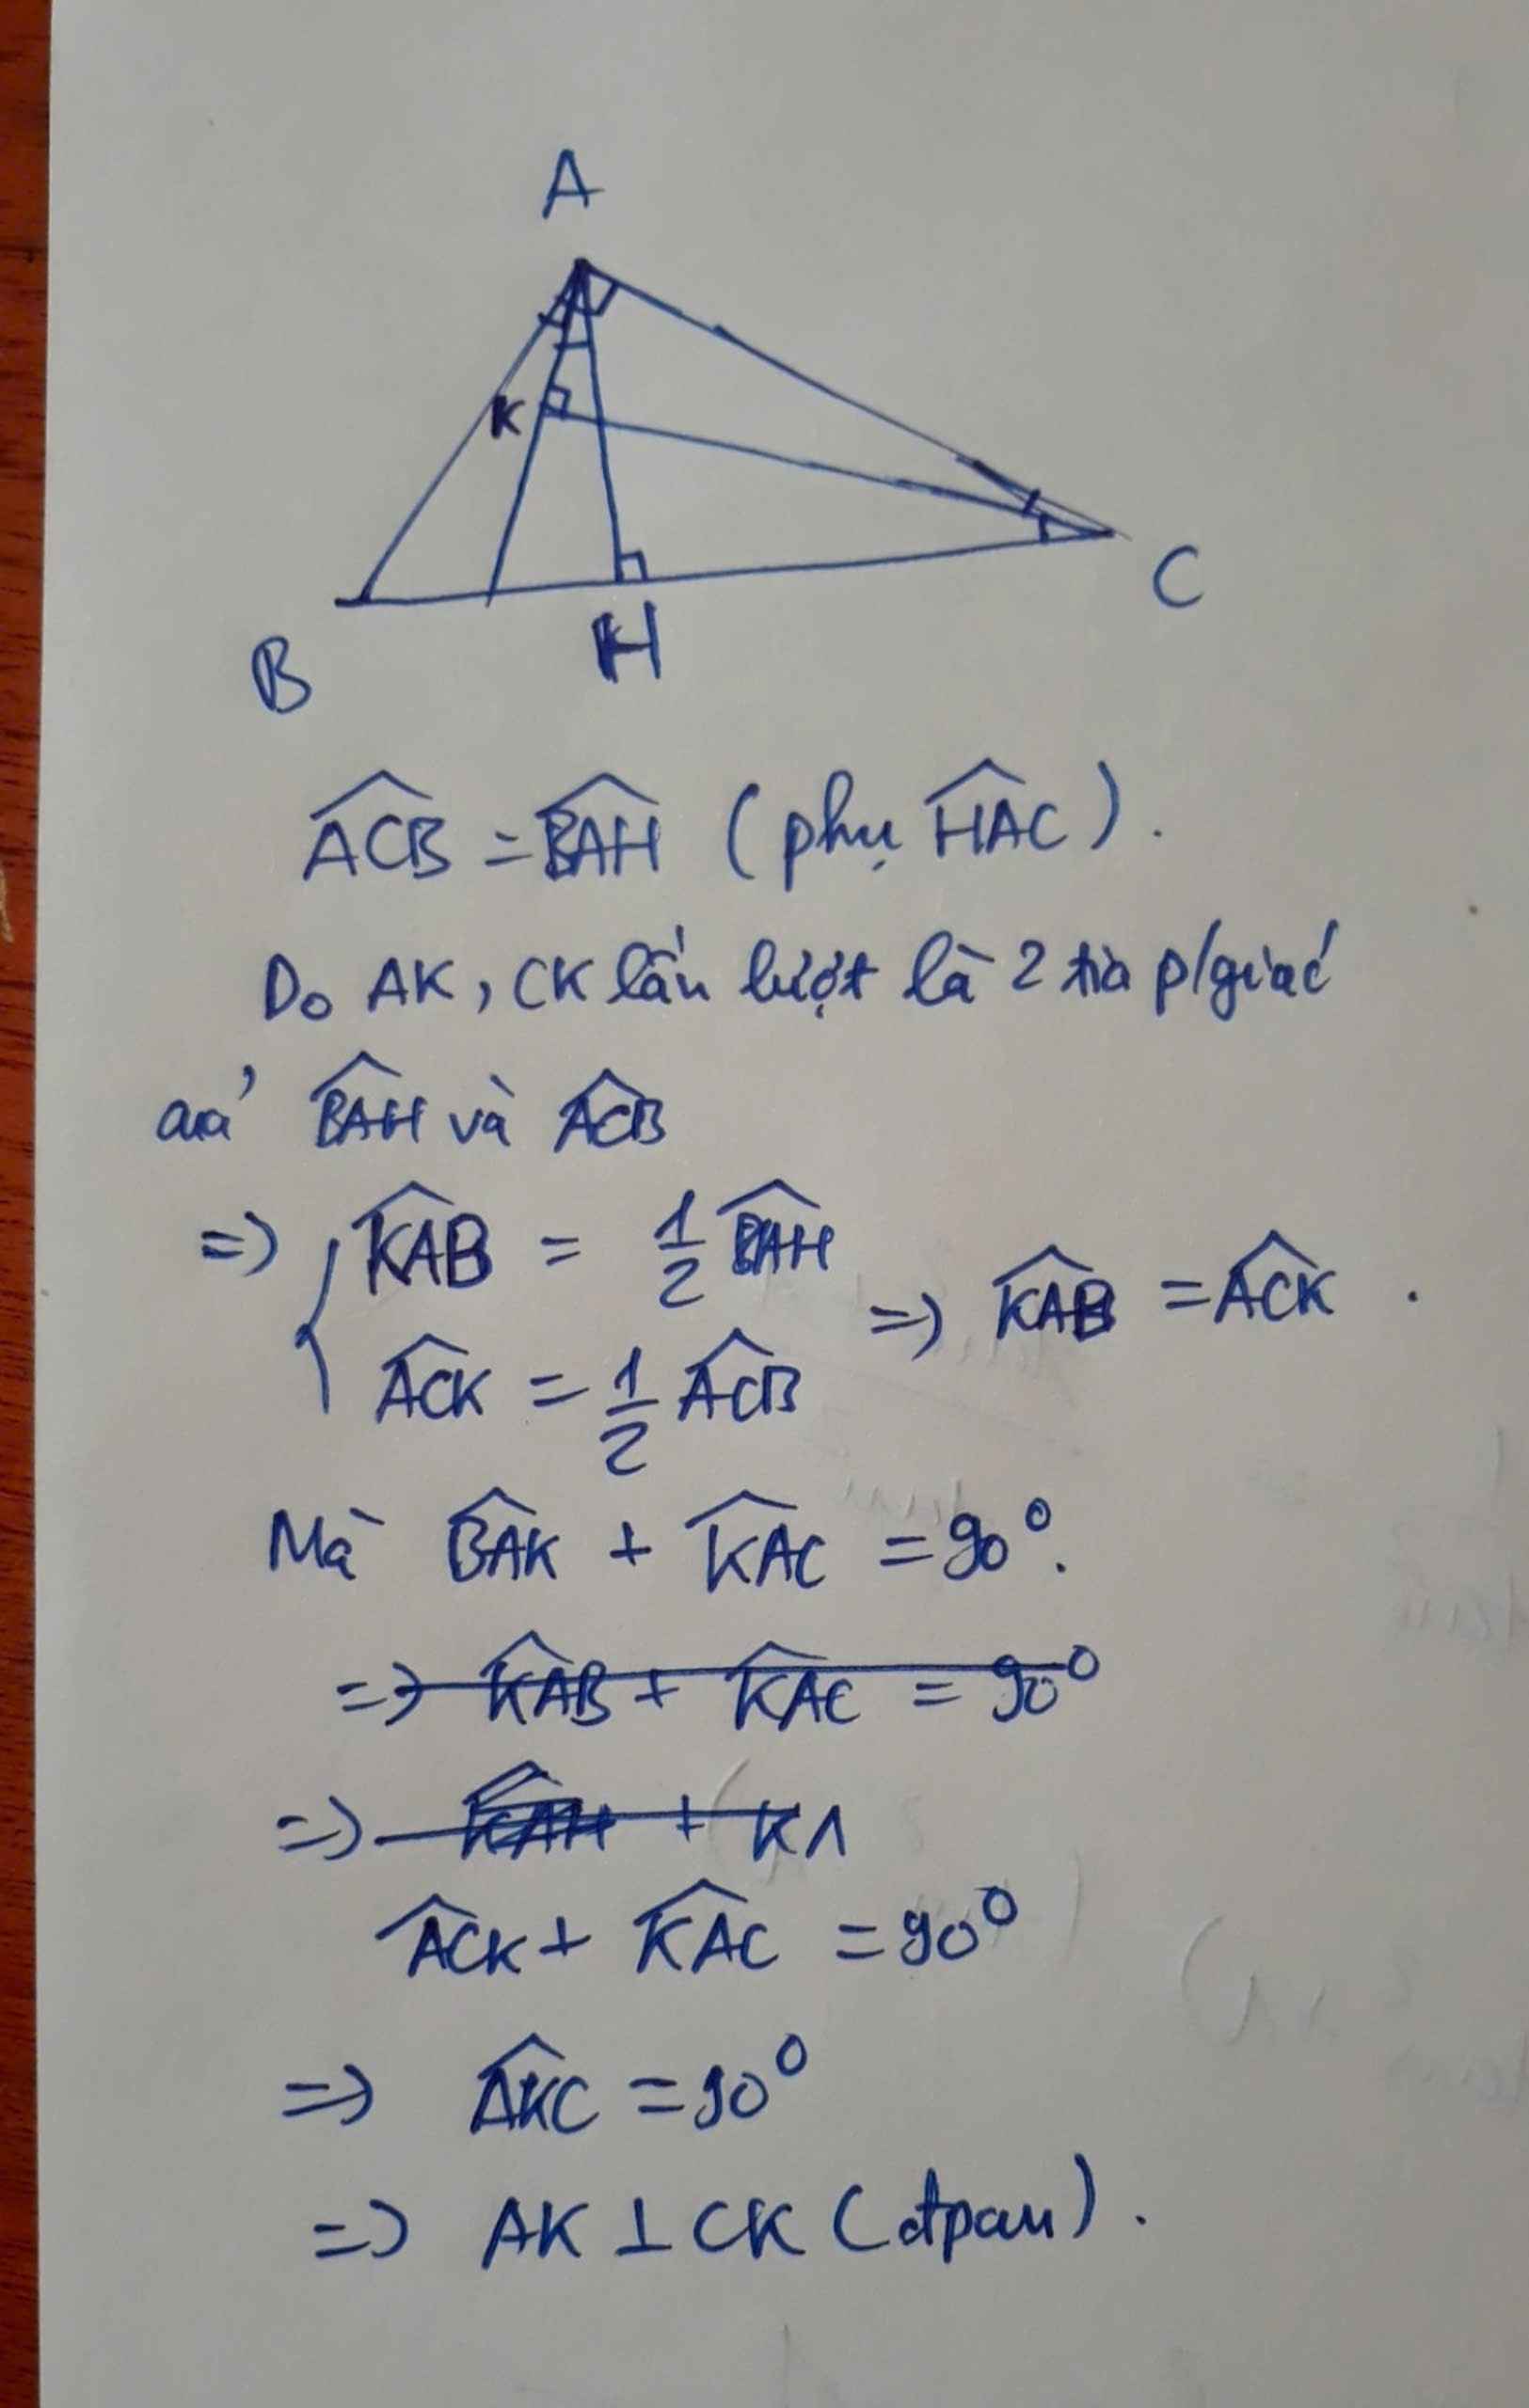 A
K
C
B
H
\widehat{ACB} = \widehat{BAH} (phụ \widehat{HAC}).
Do AK, CK lần lượt là 2 tia p/giác
của \widehat{BAH} và \widehat{ACB}
=> { \widehat{KAB} = \frac{1}{2} \widehat{BAH}
=> \widehat{KAB} = \widehat{ACK} .
\widehat{ACK} = \frac{1}{2} \widehat{ACB}
Mà \widehat{BAK} + \widehat{KAC} = 90°.
=> \widehat{KAB} + \widehat{KAC} = 90°
=> \widehat{KAH} + KA
\widehat{ACK} + \widehat{KAC} = 90°
=> \widehat{AKC} = 90°
=> AK ⊥ CK (đpcm).